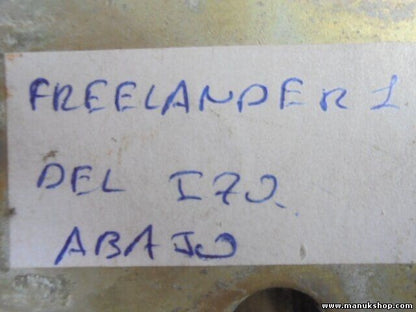 FREELANDER 1
DEL IZQ.
ABAJO
www.manukshop.com